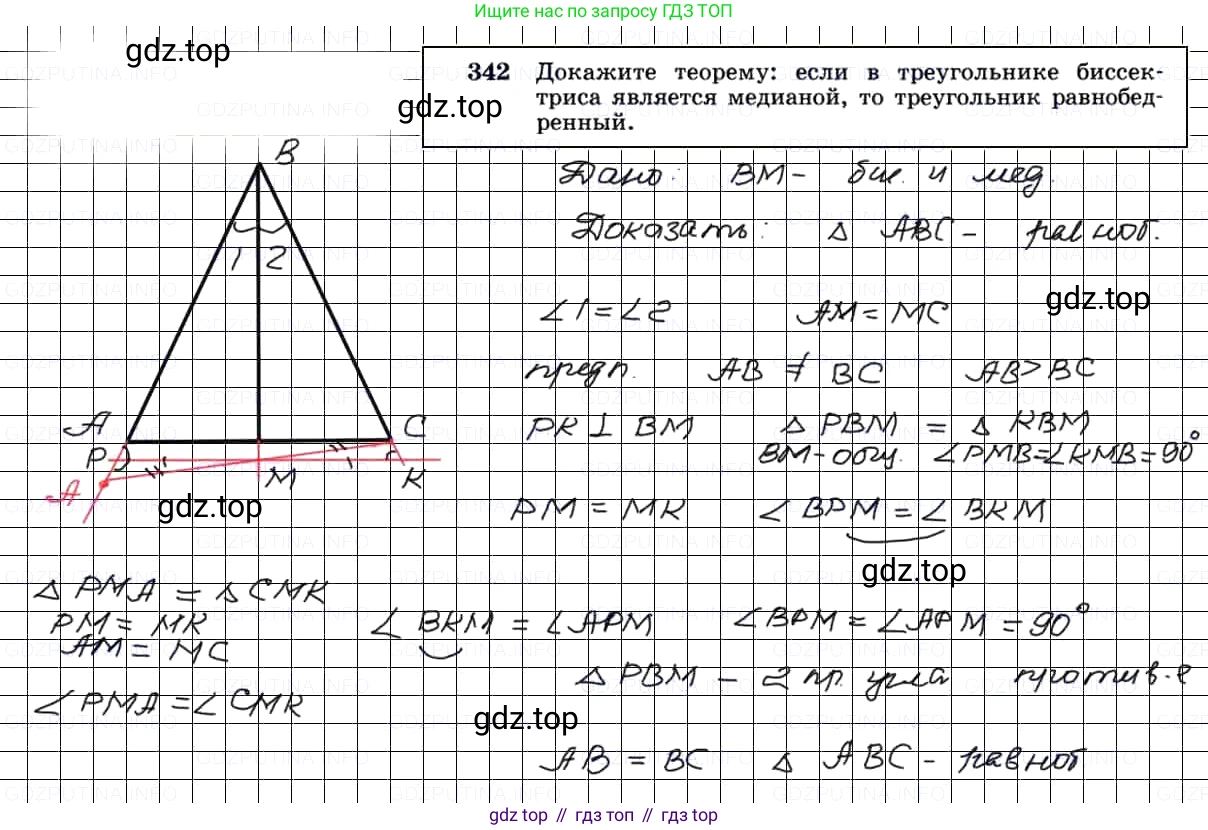 Ищите нас по запросу ГДЗ ТОП
gdz.top
342 Докажите теорему: если в треугольнике биссек-
триса является медианой, то треугольник равнобед-
ренный.
gdz.top
B
Дано: BM - бис. и мед.
Доказать: △ ABC - равноб.
1 2
∠1 = ∠2 AM = MC
gdz.top
предп. AB ≠ BC AB > BC
A C
PK ⊥ BM △ PBM = △ KBM
P
BM - общ. ∠PMB = ∠KMB = 90°
M K
A
gdz.top
PM = MK ∠ BPM = ∠ BKM
gdz.top
△ PMA = △ CMK
PM = MK ∠ BKM = ∠APM ∠BPM = ∠APM = 90°
AM = MC
△ PBM - 2 пр. угла против-е
∠ PMA = ∠ CMK
gdz.top
AB = BC △ ABC - равноб
gdz.top // гдз топ // gdz top